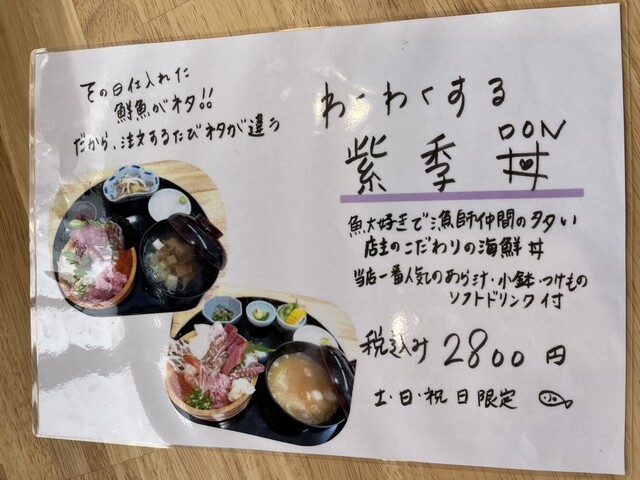 その日仕入れた
鮮魚がネタ!!
だから、注文するたびネタが違う
わーわくする
紫季丼
DON
魚大好きで漁師仲間の多い
店主のこだわりの海鮮丼
当店一番人気のあら汁・小鉢・つけもの
ソフトドリンク付
税込み 2800円
土・日・祝日限定